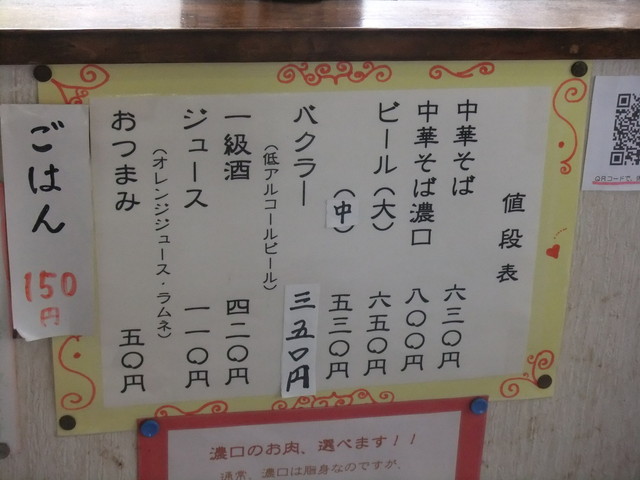 値段表
中華そば 六三〇円
中華そば濃口 八〇〇円
ビール(大) 六五〇円
(中) 五三〇円
バクラー 三五〇円
(低アルコールビール)
一級酒 四二〇円
ジュース 一一〇円
(オレンジジュース・ラムネ)
おつまみ 五〇円
ごはん
150
円
濃口のお肉、選べます!!
通常、濃口は脂身なのですが、